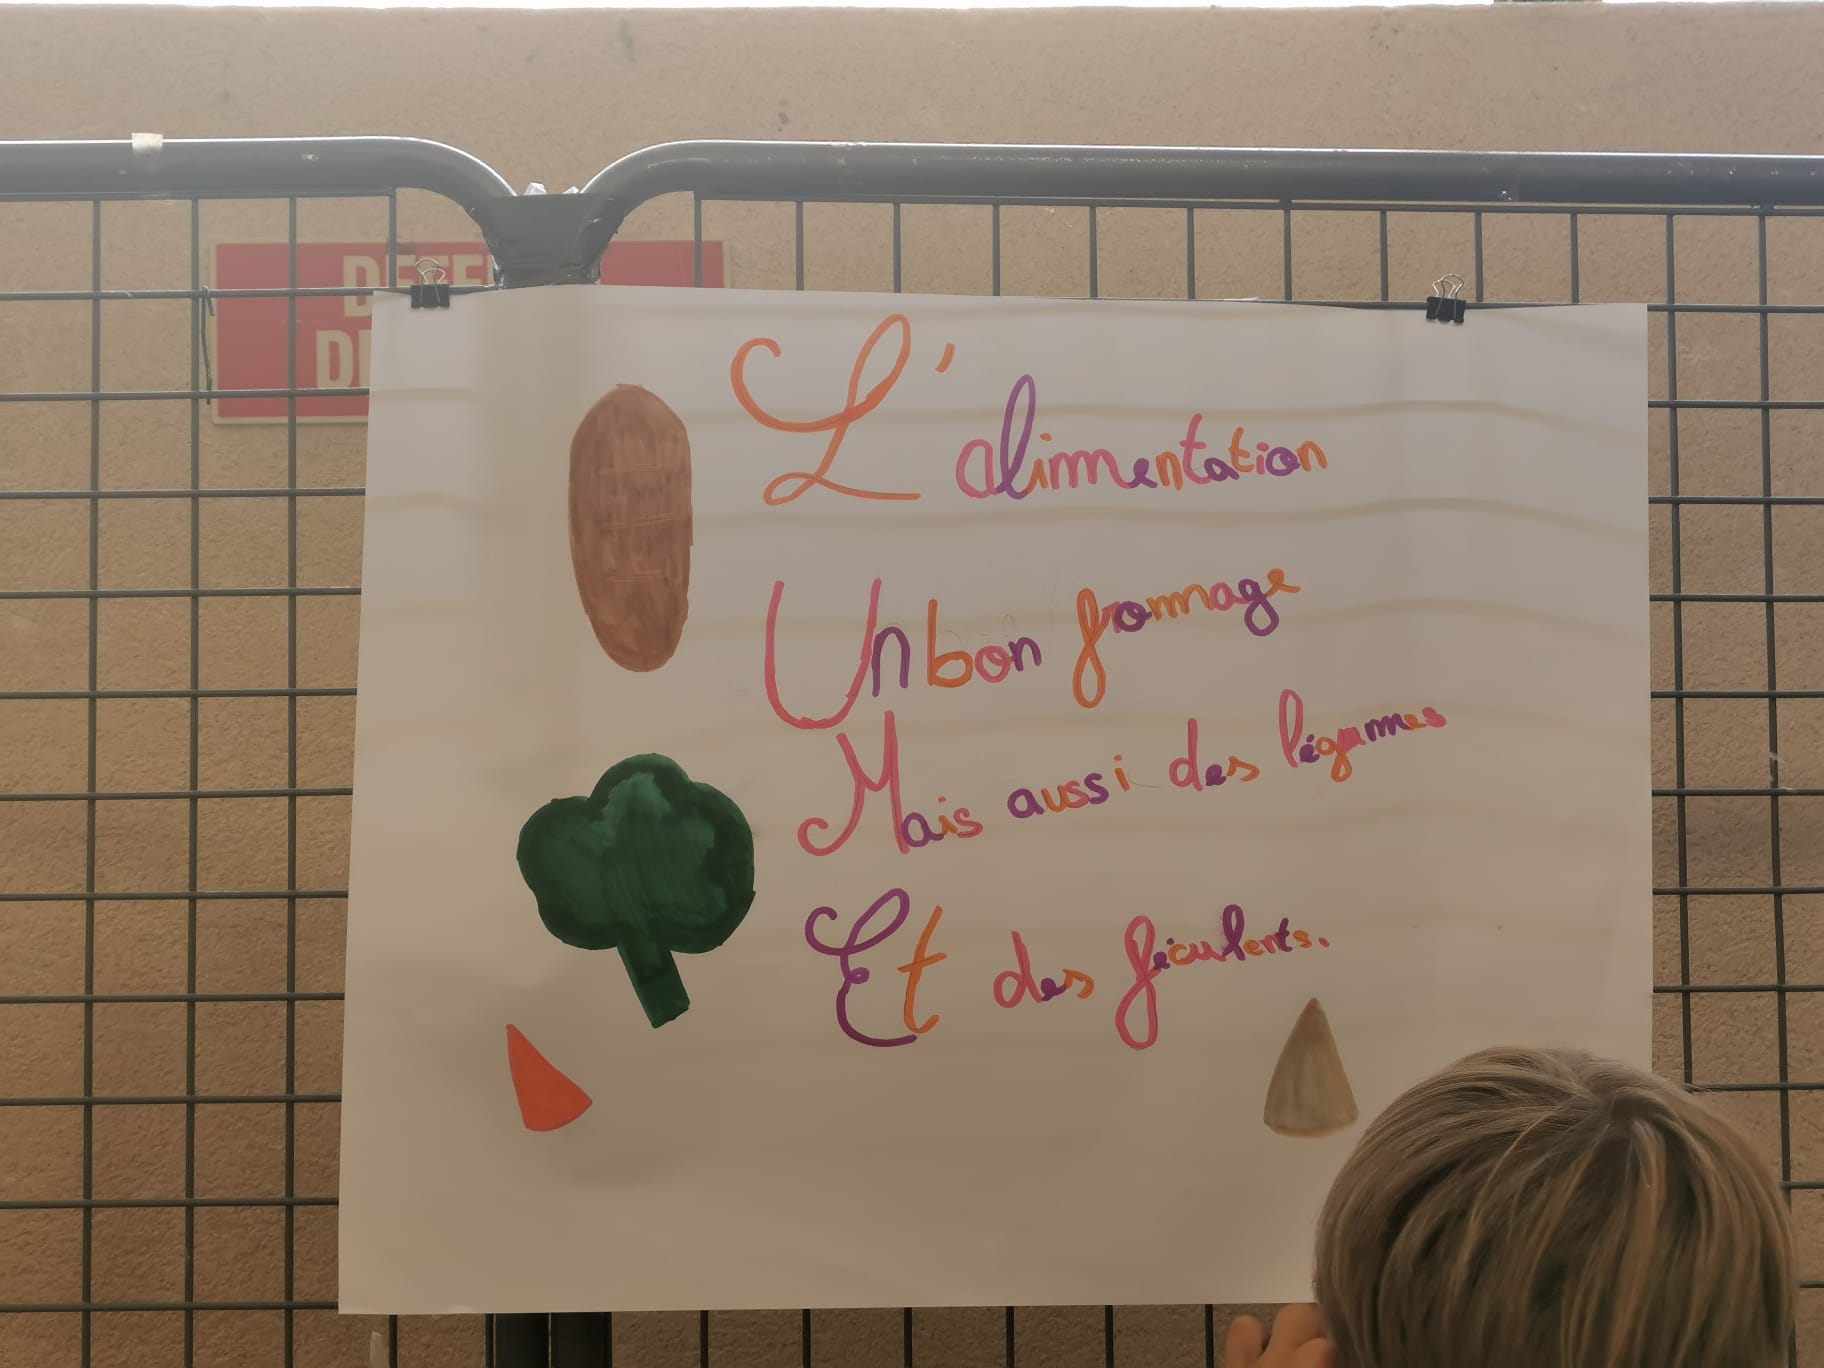 L'alimentation
Un bon frommage
Mais aussi des légummes
Et des féculents.